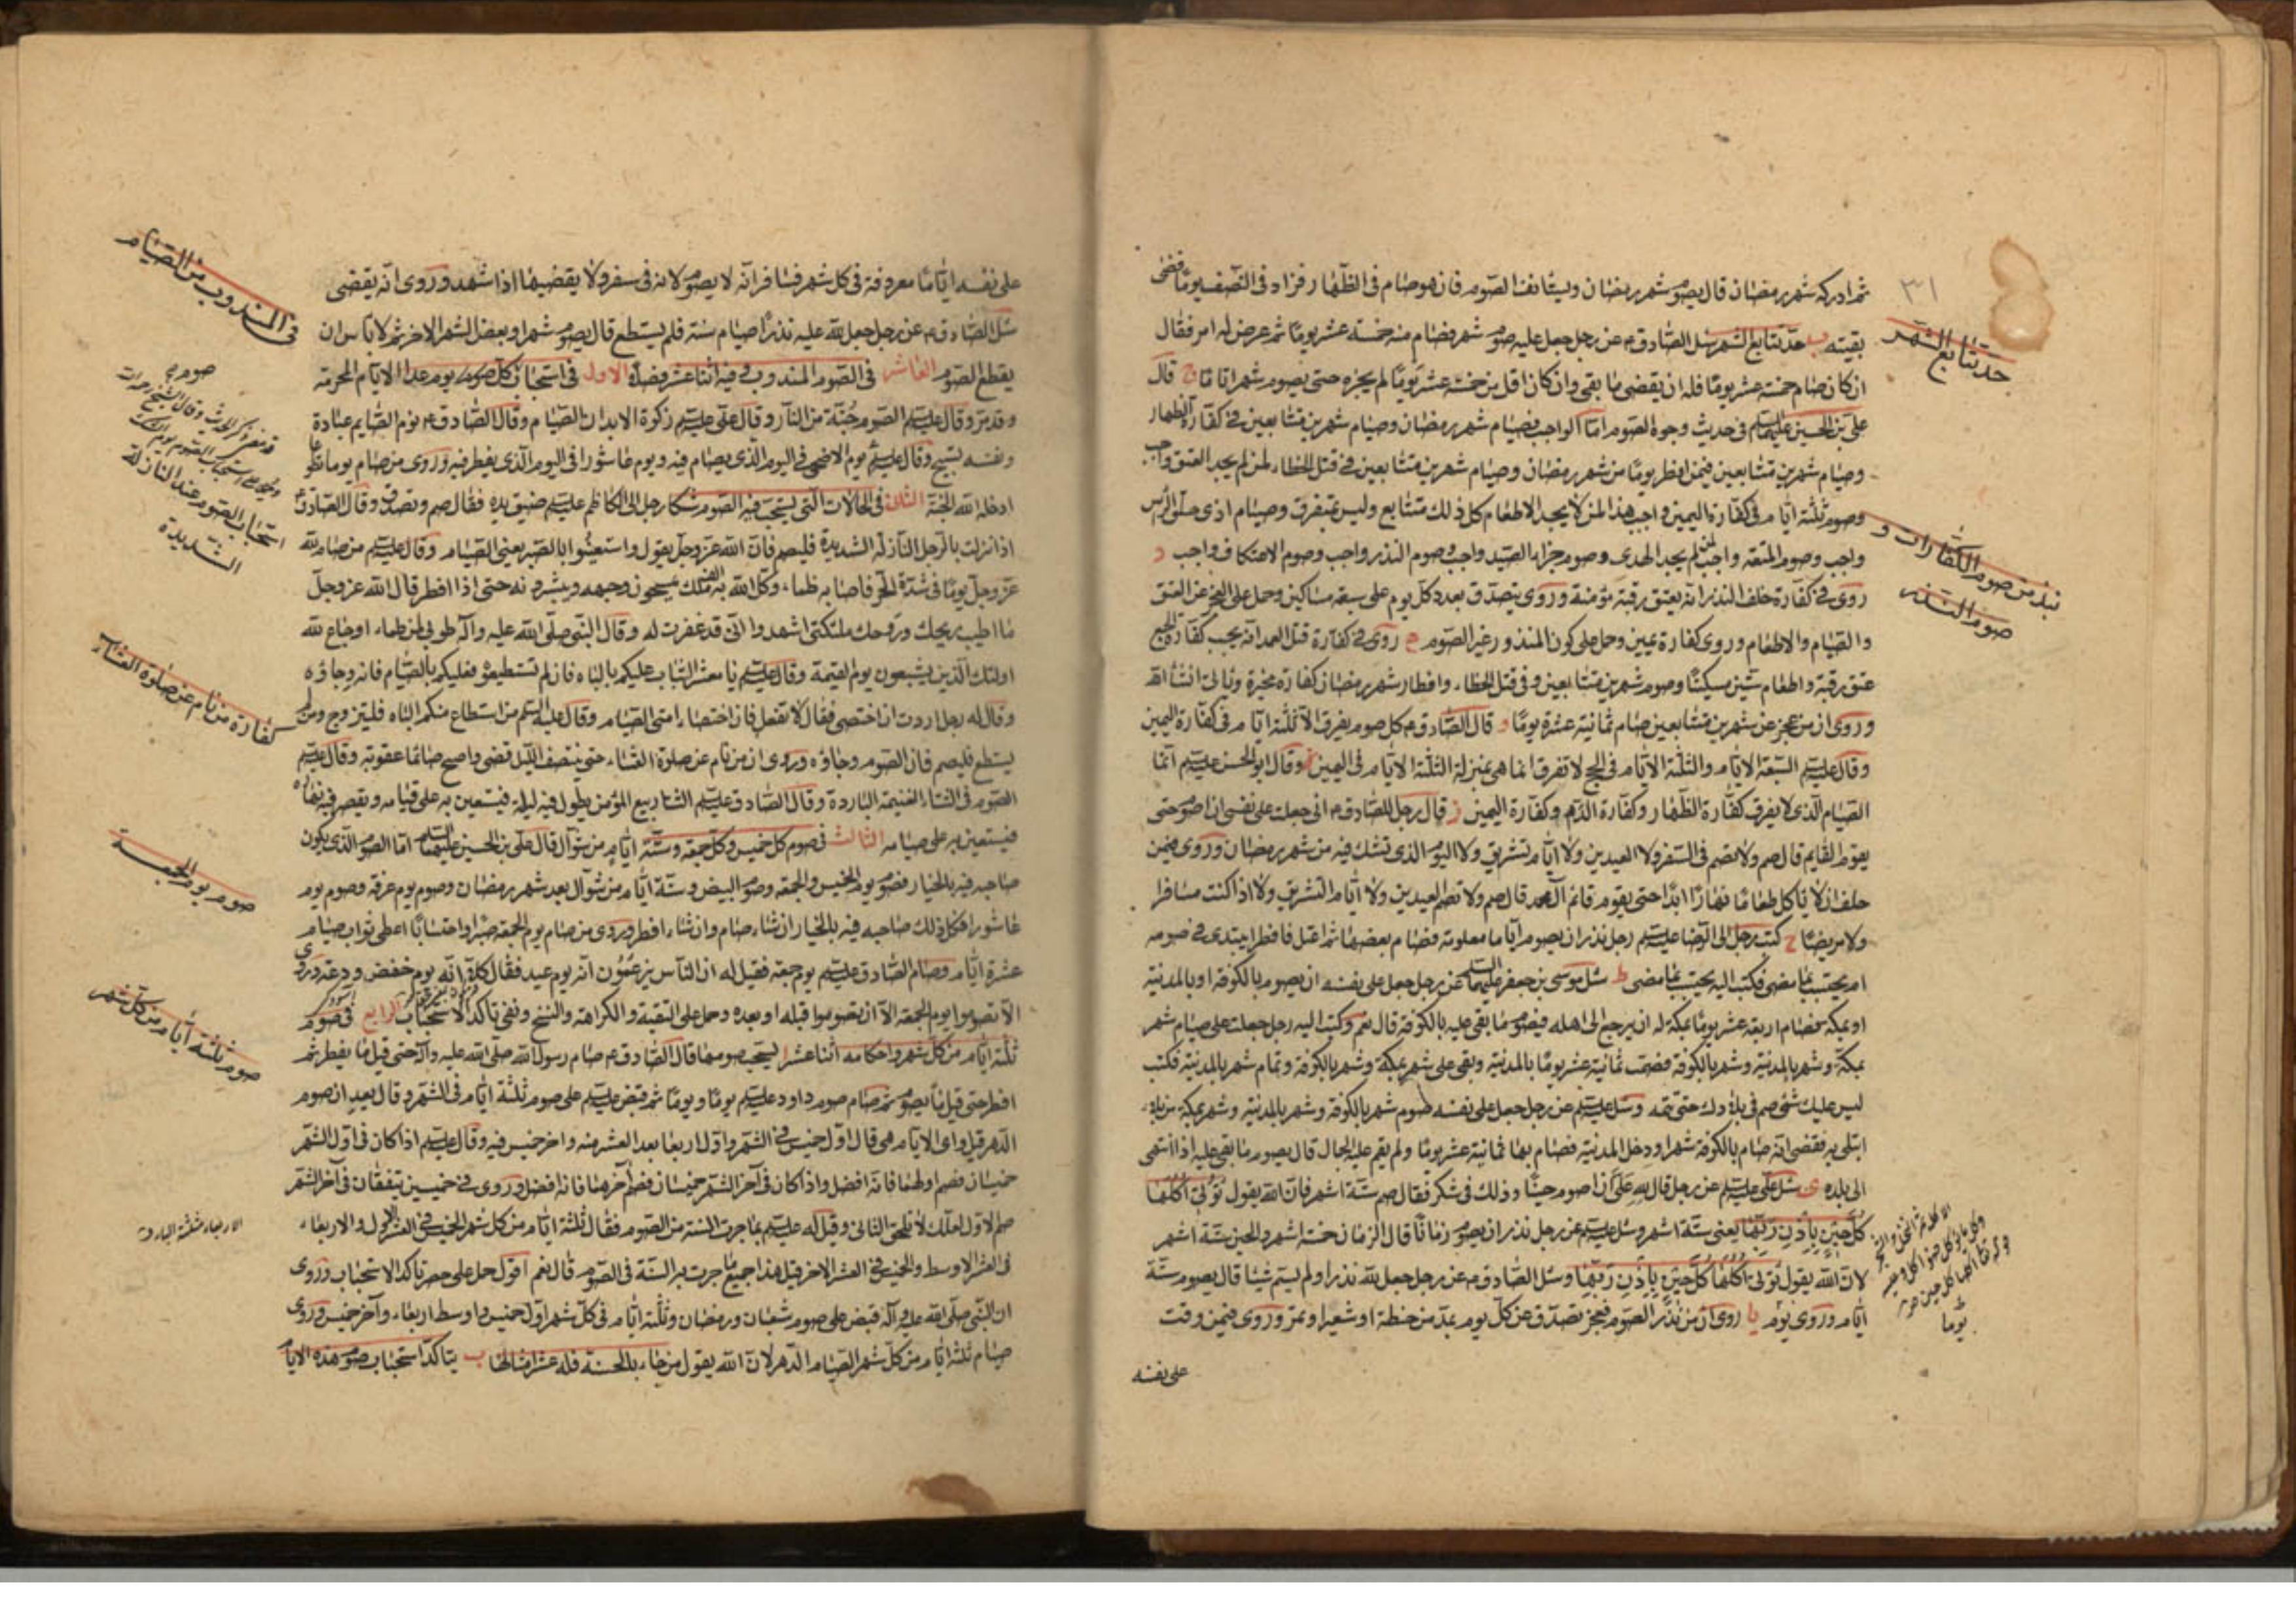 ثم ادركه شهر رمضان قال يصوم شهر رمضان ويستانف الصوم فان هو صام في الظهار فزاد في النصف يوما قضى
بقيته ب حد تتابع الشهر سئل الصادق ع عن رجل جعل عليه صوم شهر فصام منه خمسة عشر يوما ثم عرض له امر فقال
ان كان صام خمسة عشر يوما فله ان يقضى ما بقى وان كان اقل من خمسة عشر يوما لم يجزه حتى يصوم شهرا تاما ج قال
على بن الحسين عليهما السلم في حديث وجوه الصوم اما الواجب فصيام شهر رمضان وصيام شهرين متتابعين في كفارة الظهار
وصيام شهرين متتابعين فيمن افطر يوما من شهر رمضان وصيام شهرين متتابعين في قتل الخطاء لمن لم يجد العتق واجب
وصوم ثلثة ايام في كفارة اليمين واجب هذا لمن لا يجد الاطعام كل ذلك متتابع وليس بمتفرق وصيام اذى حلق الرأس
واجب وصوم المتعة واجب لمن لم يجد الهدى وصوم جزاء الصيد واجب وصوم النذر واجب وصوم الاعتكاف واجب د
روى في كفارة خلف النذر انه يعتق رقبة مؤمنة وروى يتصدق بعدد كل يوم على سبعة مساكين وحمل على العجز عن العتق
والصيام والاطعام وروى كفارة يمين وحمل على كون المنذور غير الصوم ه روى في كفارة قتل العمد انه يجب كفارة الجمع
عتق رقبة واطعام ستين مسكينا وصوم شهرين متتابعين وفي قتل الخطاء وافطار شهر رمضان كفارة مخيرة وياتى انشأ الله
وروى ان من عجز عن شهرين متتابعين صام ثمانية عشرة يوما و قال الصادق ع كل صوم يفرق الا ثلثة ايام في كفارة اليمين
وقال عليه السلم السبعة الايام والثلثة الايام في الحج لا تفرق انما هى بمنزلة الثلثة الايام في اليمين وقال ابو الحسن عليه السلم انما
الصيام الذى لا يفرق كفارة الظهار وكفارة الدم وكفارة اليمين ز قال رجل للصادق ع انى جعلت على نفسى ان اصوم حتى
يقوم القايم قال صم ولا تصم في السفر ولا العيدين ولا ايام تشريق ولا اليوم الذى تشك فيه من شهر رمضان وروى فيمن
حلف ان لا ياكل طعاما نهارا ابدا حتى يقوم قائم آل محمد قال صم ولا تصم العيدين ولا ايام التشريق ولا اذا كنت مسافرا
ولا مريضا ح كتب رجل الى الرضا عليه السلم رجل نذر ان يصوم اياما معلومة فصام بعضها ثم اعتل فافطر ايبتدى في صومه
ام يحتسب بما مضى فكتب اليه يحتسب بما مضى ط سئل موسى بن جعفر عليهما السلم عن رجل جعل على نفسه ان يصوم بالكوفة او بالمدينة
او بمكة فصام اربعة عشر يوما بمكة له ان يرجع الى اهله فيصوم ما بقى عليه بالكوفة قال نعم وكتب اليه رجل جعلت على صيام شهر
بمكة وشهر بالمدينة وشهر بالكوفة فصمت ثمانية عشر يوما بالمدينة وبقى على شهر بمكة وشهر بالكوفة وتمام شهر بالمدينة فكتب
ليس عليك شئ صم في بلادك حتى تتمه وسئل عليه السلم عن رجل جعل على نفسه صوم شهر بالكوفة وشهر بالمدينة وشهر بمكة من بلاء
ابتلى به فقضى انه صام بالكوفة شهرا ودخل المدينة فصام بها ثمانية عشر يوما ولم يقم عليه الجمال قال يصوم ما بقى عليه اذا انتهى
الى بلده ى سئل على عليه السلم عن رجل قال لله على ان اصوم حينا وذلك في شكر فقال صم ستة اشهر فان الله يقول تؤتى اكلها
كل حين باذن ربها يعنى ستة اشهر وسئل عليه السلم عن رجل نذر ان يصوم زمانا قال الزمان خمسة اشهر والحين ستة اشهر
لان الله يقول تؤتى اكلها كل حين باذن ربها وسئل الصادق ع عن رجل جعل لله نذرا ولم يسم شيئا قال يصوم ستة
ايام وروى يوم يا روى ان من نذر الصوم فعجز تصدق عن كل يوم بمد من حنطة او شعير او تمر وروى فيمن وقت
على نفسه
٣١
حد تتابع الشهر
نبذ من صوم الكفارات و
صوم النذر
يوما
على نفسه اياما معروفة في كل شهر فسافر انه لا يصوم لانه في سفر ولا يقضيها اذا شهد وروى انه يقضى
سئل الصادق ع عن رجل جعل لله عليه نذرا صيام سنة فلم يستطع قال يصوم شهرا وبعض الشهر الاخر ثم لا باس ان
يقطع الصوم العاشر في الصوم المندوب وفيه اثنا عشر فصلا الاول في استحباب كل صوم يوم عدا الايام المحرمة
وقد مر وقال عليه السلم الصوم جنة من النار وقال على عليه السلم زكوة الابدان الصيام وقال الصادق ع نوم الصايم عبادة
ونفسه تسبيح وقال عليه السلم يوم الاضحى في اليوم الذى يصام فيه ويوم عاشورا في اليوم الذى يفطر فيه وروى من صام يوما تطوعا
ادخله الله الجنة الثانى في الحالات التى يستحب فيه الصوم شكا رجل الى الكاظم عليه السلم ضيق يده فقال صم وتصدق وقال الصادق ع
اذا نزلت بالرجل النازلة الشديدة فليصم فان الله عز وجل يقول واستعينوا بالصبر يعنى الصيام وقال عليه السلم من صام لله
عز وجل يوما في شدة الحر فاصابه ظماء وكل الله به الف ملك يمسحون وجهه ويبشرونه حتى اذا افطر قال الله عز وجل
ما اطيب ريحك وروحك ملئكتى اشهدوا انى قد غفرت له وقال النبى صلى الله عليه وآله طوبى لمن ظماء او جاع لله
اولئك الذين يشبعون يوم القيمة وقال عليه السلم يا معشر الشباب عليكم بالباه فان لم تستطيعوه فعليكم بالصيام فانه وجاؤه
وقال له رجل اردت ان اختصى فقال لا تفعل فان اختصاء امتى الصيام وقال عليه السلم من استطاع منكم الباه فليتزوج ومن لم
يستطع فليصم فان الصوم وجاؤه وروى ان من نام عن صلوة العشاء حتى ينتصف الليل قضى واصبح صائما عقوبة وقال عليه السلم
الصوم في الشتاء الغنيمة الباردة وقال الصادق عليه السلم الشتا ربيع المؤمن يطول فيه ليله فيستعين به على قيامه ويقصر فيه نهاره
فيستعين به على صيامه الثالث في صوم كل خميس وكل جمعة وستة ايام من شوال قال على بن الحسين عليهما السلم اما الصوم الذى يكون
صاحبه فيه بالخيار فصوم يوم الخميس والجمعة وصوم البيض وستة ايام من شوال بعد شهر رمضان وصوم يوم عرفة وصوم يوم
عاشورا فكل ذلك صاحبه فيه بالخيار ان شاء صام وان شاء افطر وروى من صام يوم الجمعة صبرا واحتسابا اعطى ثواب صيام
عشرة ايام وصام الصادق عليه السلم يوم جمعة فقيل له ان الناس يزعمون انه يوم عيد فقال كلا انه يوم خفض ودعة وروى
الا تصوموا يوم الجمعة الا ان تصوموا قبله او بعده وحمل على التقية والكراهة والنسخ ونفى تاكد الاستحباب الرابع في صوم
ثلثة ايام من كل شهر واحكامه اثنا عشر ا يستحب صومها قال الصادق ع صام رسول الله صلى الله عليه وآله حتى قيل ما يفطر ثم
افطر حتى قيل ما يصوم ثم صام صوم داود عليه السلم يوما ويوما ثم قبض عليه السلم على صوم ثلثة ايام في الشهر وقال يعدلن صوم
الدهر قيل واى الايام هى قال اول خميس في الشهر واول اربعا بعد العشر منه واخر خميس فيه وقال عليه السلم اذا كان في اول الشهر
خميسان فصم اولهما فانه افضل واذا كان في آخر الشهر خميسان فصم آخرهما فانه افضل وروى في خميسين يتفقان في آخر الشهر
صم الاول لعلك لا تلحق الثانى وقيل له عليه السلم بما جرت السنة من الصوم فقال ثلثة ايام من كل شهر الخميس في العشر الاول والاربعاء
في العشر الاوسط والخميس في العشر الاخر قيل هذا جميع ما جرت به السنة في الصوم قال نعم اقول حمل على حصر تاكد الاستحباب وروى
ان النبى صلى الله عليه وآله قبض على صوم شعبان ورمضان وثلثة ايام في كل شهر اول خميس واوسط اربعاء وآخر خميس وروى
صيام ثلثة ايام من كل شهر الصيام الدهر لان الله يقول من جاء بالحسنة فله عشر امثالها ب يتاكد استحباب صوم هذه الايام
في المندوب من الصيام
استحباب الصوم عند النازلة
الشديدة
كفارة من نام عن صلوة العشاء
صوم يوم الجمعة
صوم ثلثة ايام من كل شهر